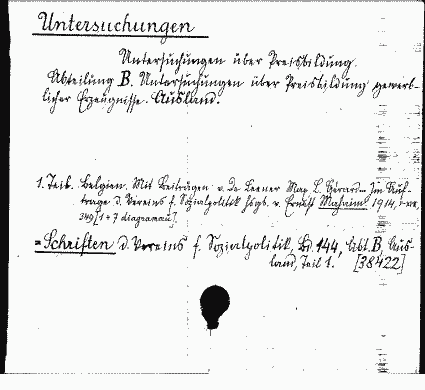 Untersuchungen
Untersuchungen über Preisbildung.
Abteilung B. Untersuchungen über Preisbildung gewerb-
licher Erzeugnisse. Ausland.
1. Teil. Belgien. Mit Beiträgen v. De Leener Max L. Gérard. Im Auf-
trage d. Vereins f. Sozialpolitik hsgb. v. Ernest Mahaim 1914,
349 [1 + 7 diagramau].
= Schriften d. Vereins f. Sozialpolitik, Bd. 144, Abt. B, Aus-
land, Teil 1. [38422]